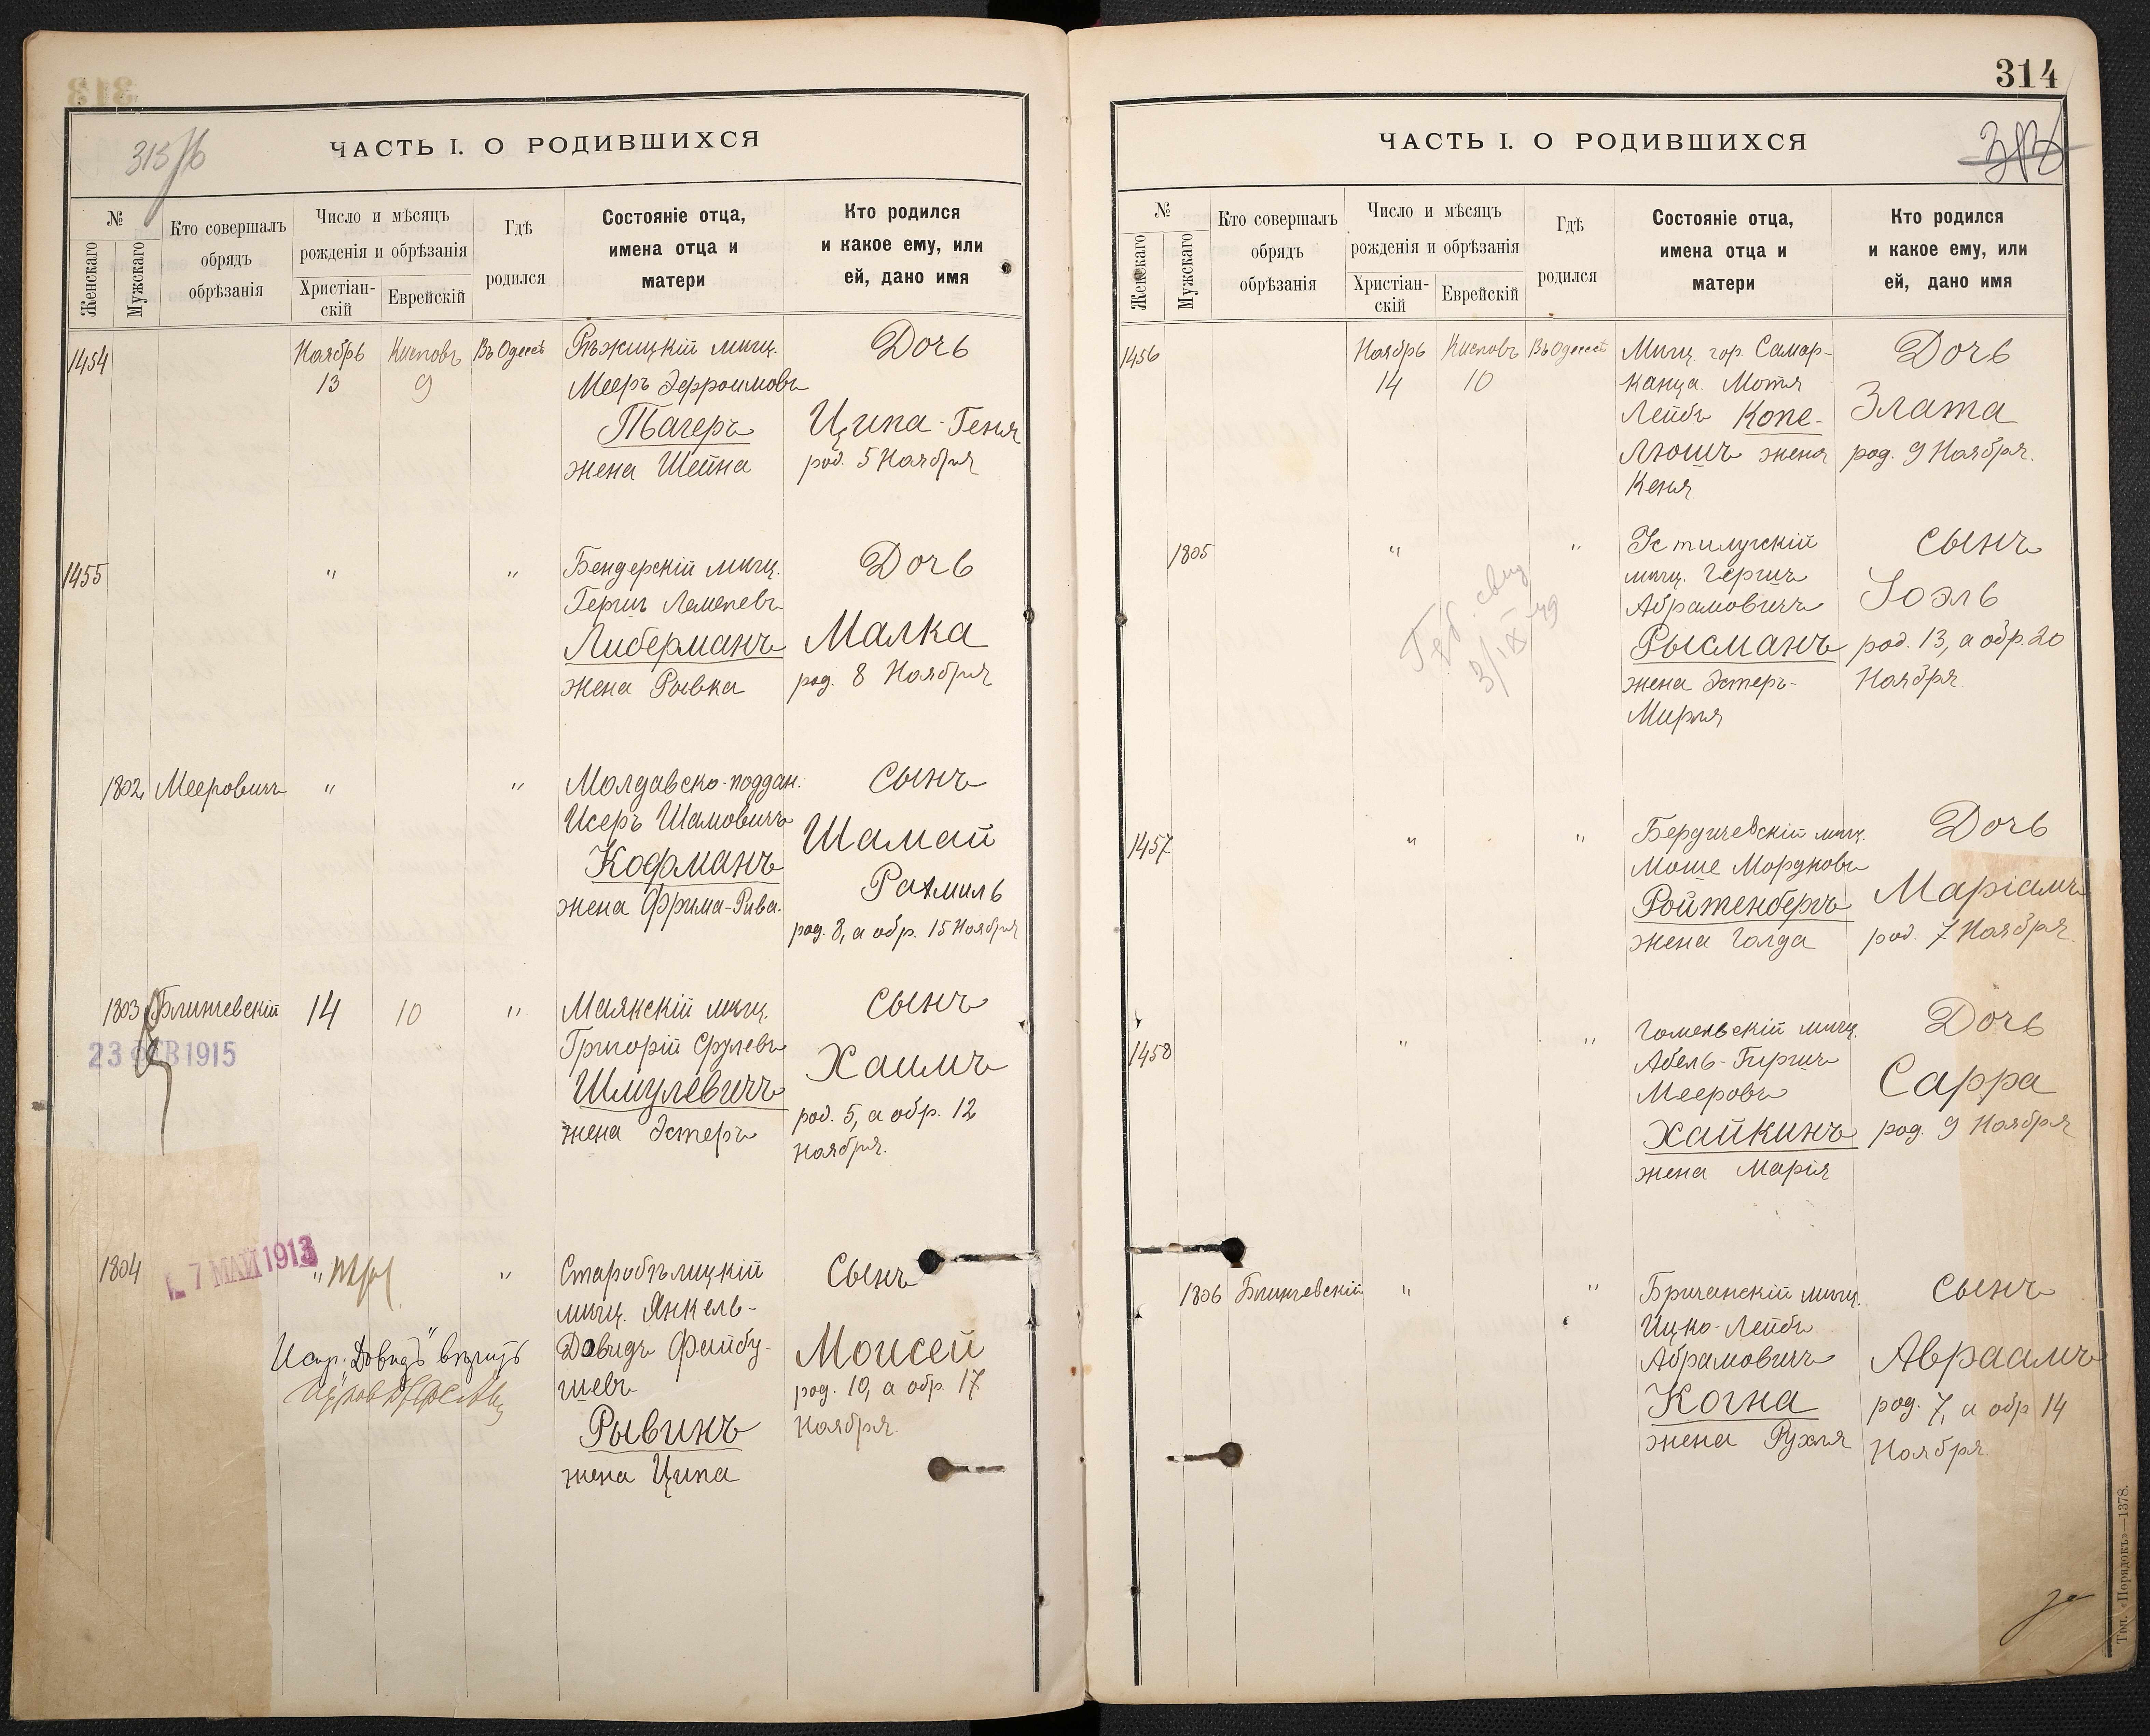 315/б
ЧАСТЬ I. О РОДИВШИХСЯ
№
Женскаго
Мужскаго
Кто совершалъ
обрядъ
обрѣзанія
Число и мѣсяцъ
рожденія и обрѣзанія
Христіан-
скій
Еврейскій
Гдѣ
родился
Состояніе отца,
имена отца и
матери
Кто родился
и какое ему, или
ей, дано имя
1454
Ноябрь
13
Кисловъ
9
Въ Одессѣ
Рѣжицкій мѣщ.
Мееръ Эфроимовъ
Тагеръ
жена Шейна
Дочь
Ципа-Геня
род. 5 Ноября
1455
"
"
Бендерскій мѣщ.
Гершъ
Либерманъ
жена Рывка
Дочь
Малка
род. 8 Ноября
1802
Мееровичъ
"
"
Молдавско-поддан.
Исеръ Шамовичъ
Кофманъ
жена Фрима-Рива.
Сынъ
Шамай
Рахмиль
род. 8, а обр. 15 Ноября
1803
Блинчевскій
23 ФЕВ 1915
14
10
"
Маякскій мѣщ.
Григорій Срулевъ
Шмулевичъ
жена Эстеръ
Сынъ
Хаимъ
род. 5, а обр. 12
Ноября.
1804
7 МАЙ 1913
"
"
Старобѣльцкій
мѣщ. Янкель-
Довидъ Файбу-
шевъ
Рывинъ
жена Ципа
Сынъ
Моисей
род. 10, а обр. 17
Ноября.
Испр. "Довидъ" вѣрить
314
ЧАСТЬ I. О РОДИВШИХСЯ
№
Женскаго
Мужскаго
Кто совершалъ
обрядъ
обрѣзанія
Число и мѣсяцъ
рожденія и обрѣзанія
Христіан-
скій
Еврейскій
Гдѣ
родился
Состояніе отца,
имена отца и
матери
Кто родился
и какое ему, или
ей, дано имя
1456
Ноябрь
14
Кисловъ
10
Въ Одессѣ
Мѣщ. гор. Самар-
канда. Мотя
Лейбъ Копе-
люшъ жена
Кеня
Дочь
Злата
род. 9 Ноября.
1805
"
"
Устилугскій
мѣщ. Гершъ
Абрамовичъ
Рысманъ
жена Эстеръ-
Мирля
Сынъ
Іоэль
род. 13, а обр. 20
Ноября.
1457
"
"
Бердичевскій мѣщ.
Моше Мордковъ
Ройтенбергъ
жена Голда
Дочь
Маріамъ
род. 7 Ноября.
1458
"
"
Гомельскій мѣщ.
Абель-Гиршъ
Мееровъ
Хайкинъ
жена Марія
Дочь
Сарра
род. 9 Ноября
1806
Блинчевскій
"
"
Бричанскій мѣщ.
Ицко-Лейбъ
Абрамовичъ
Когна
жена Рухля
Сынъ
Авраамъ
род. 7, а обр. 14
Ноября.
Тип. «Порядокъ»—1378.